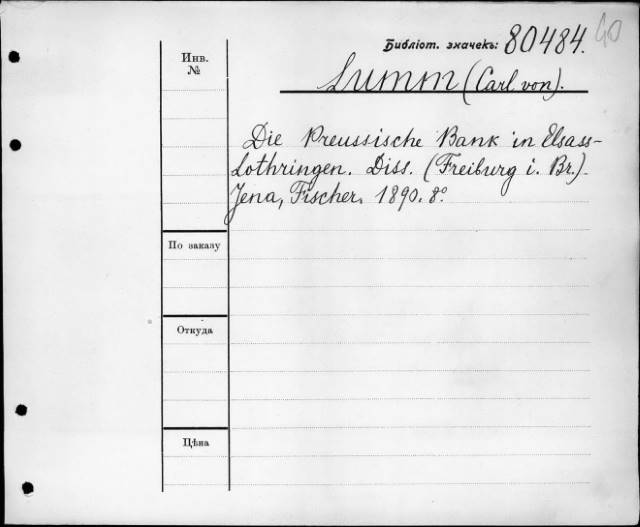 Библіот. значекъ: 80484. 40
Инв. №
Lumm (Carl von).
Die Preussische Bank in Elsass-
Lothringen. Diss. (Freiburg i. Br.).
Jena, Fischer, 1890. 8º
По заказу
Откуда
Цѣна